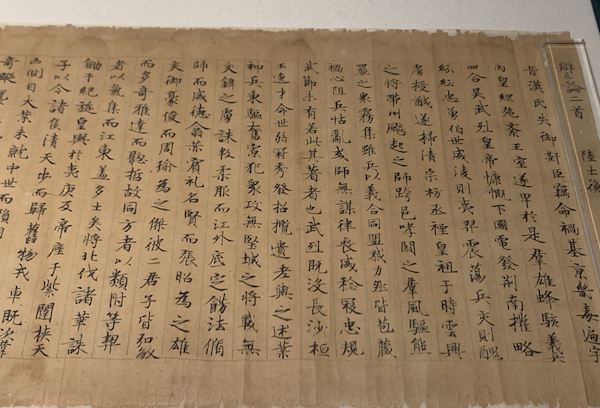 辯亡論二首 陸士衡
昔漢氏失御姧臣竊命禍基京畿毒遍宇
內皇綱弛紊王室遂卑於是羣雄蜂駭義兵
四合吳武烈皇帝慷慨下國電發荊南權略
紛紜忠勇伯世威稜則夷羿震蕩兵交則醜
虜授馘遂掃清宗祊丞禋皇祖于時雲興
之將帶州飈起之師跨邑哮闞之羣風驅熊
羆之衆霧集雖兵以義合同盟戮力然皆苞藏
禍心阻兵怙亂或師無謀律喪威稔寇忠規
武節未有若此其著者也武烈既没長沙桓
王逸才命世弱冠秀發招攬遺老與之述業
神兵東驅奮寡犯衆攻無堅城之將戰無
交鋒之虜誅叛柔服而江外底定飭法脩
師而威德翕赫賓礼名賢而張昭為之雄
交御豪俊而周瑜為之傑彼二君子皆弘敏
而多奇雅達而聰哲故同方者以類附等契
者以氣集而江東蓋多士矣將北伐諸華誅
鋤干紀旋皇輿於夷庚反帝座于紫闥挾天
子以令諸侯清天步而歸舊物戎車既次羣
凶側目大業未就中世而隕
奇蹤